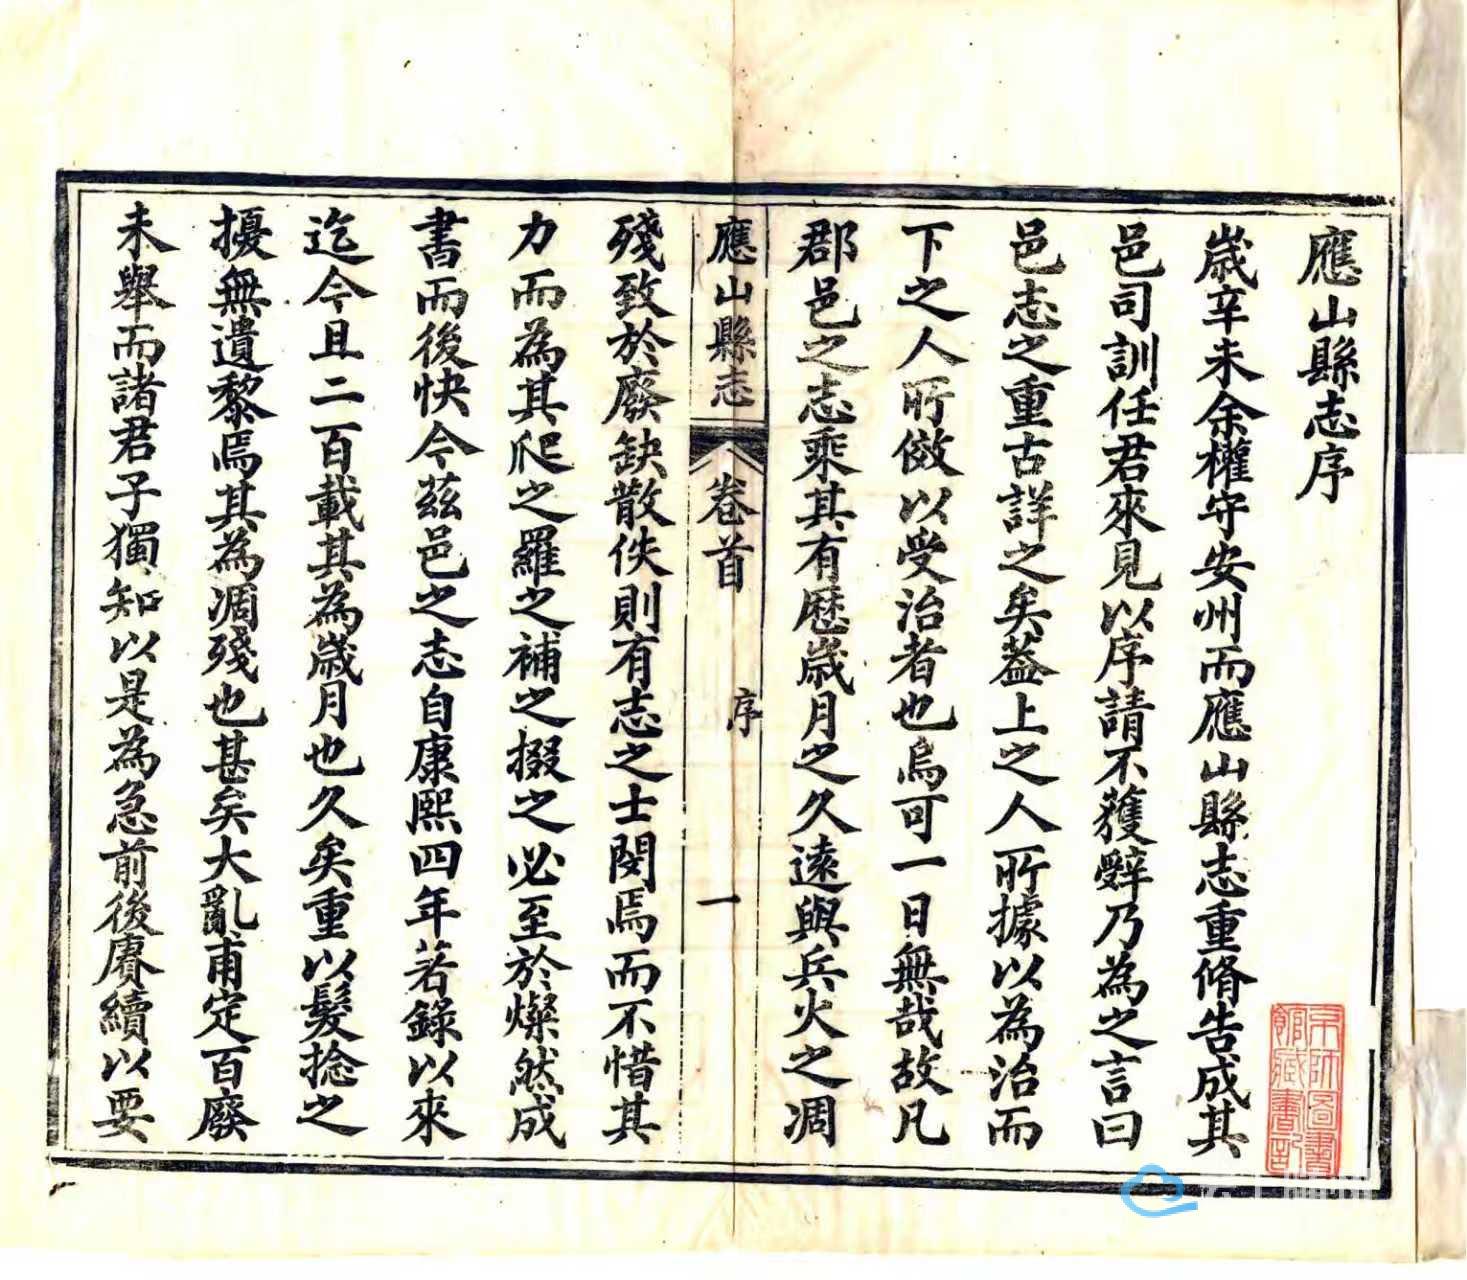 應山縣志序
歲辛未余權守安州而應山縣志重脩告成其
邑司訓任君來見以序請不獲辭乃為之言曰
邑志之重古詳之矣葢上之人所據以為治而
下之人所倣以受治者也烏可一日無哉故凡
郡邑之志乘其有歷歲月之久遠與兵火之凋
應山縣志 卷首 序 一
殘致於廢缺散佚則有志之士閔焉而不惜其
力而為其爬之羅之補之掇之必至於燦然成
書而後快今茲邑之志自康熙四年若錄以來
迄今且二百載其為歲月也久矣重以髮捻之
擾無遺黎焉其為凋殘也甚矣大亂甫定百廢
未舉而諸君子獨知以是為急前後賡續以要
京師圖書
館藏書記
云上随州